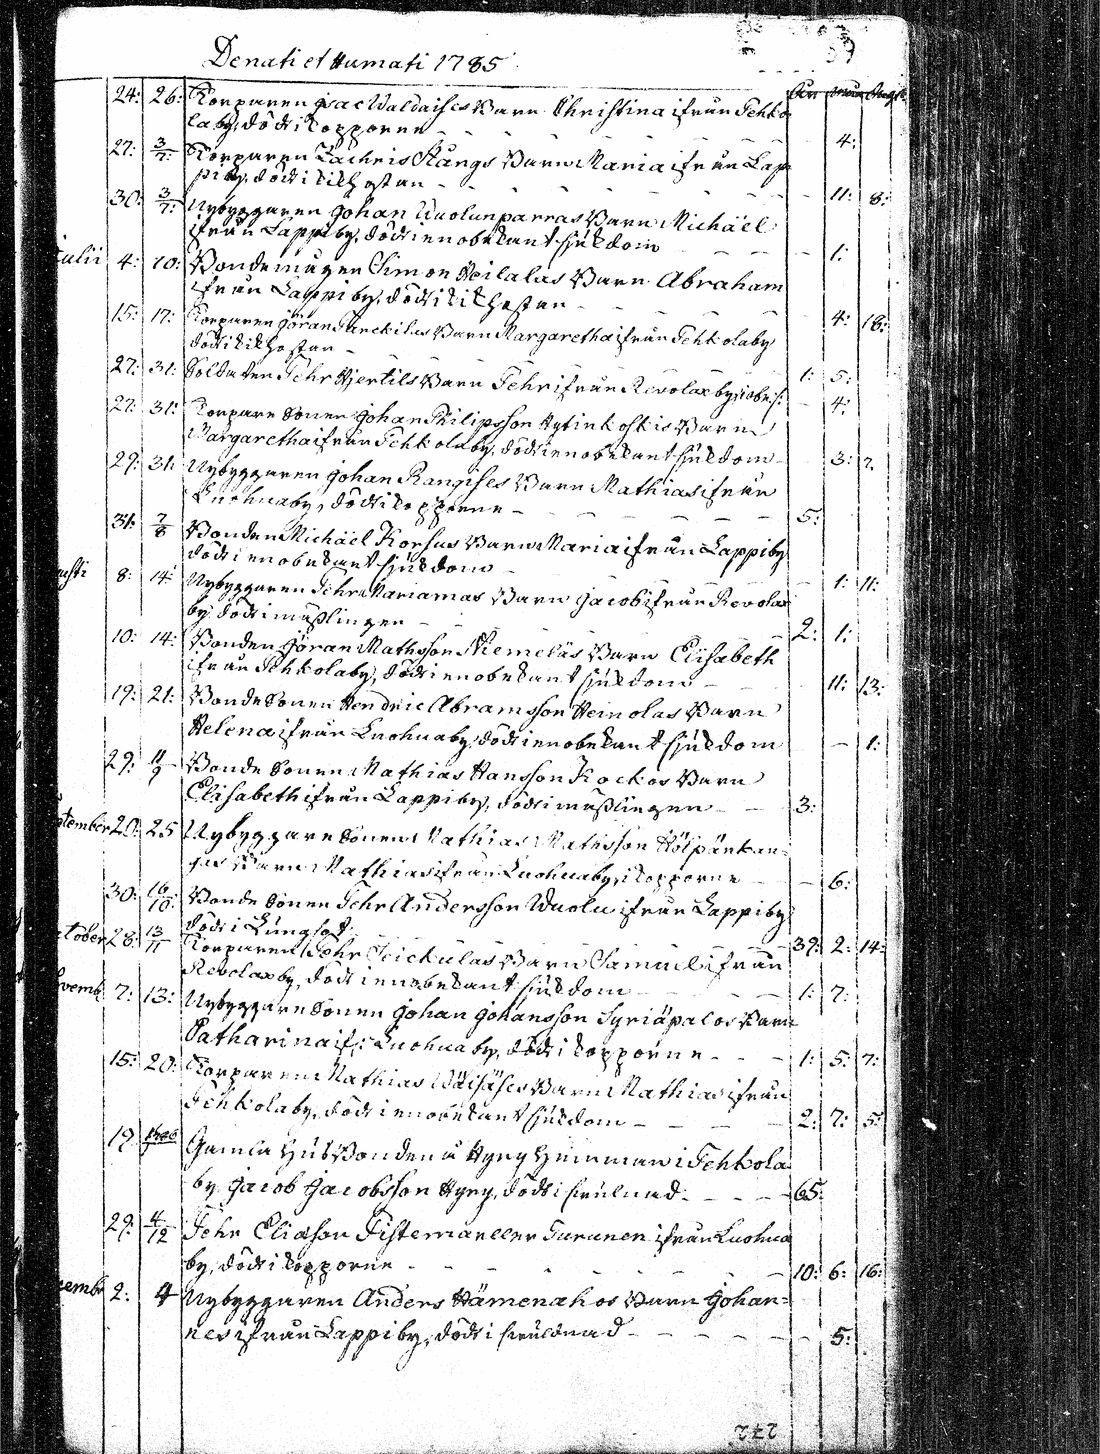 Denati et Humati 1785
59
åhr månad dagar
24: 26: Torparen Isac Waldaises Barn Christina ifrån Pehko
laby, död i kopporne - - - 4:
27: 3/7: Torparen Zachris Stångs Barn Maria ifrån Lap
piby, död i kikhostan - - - 11: 8:
30: 3/7: Nybyggaren Johan Kuolunparras Barn Michäel
ifrån Lappiby, död i en obekant sjukdom - 1:
Julii 4: 10: Bondemågen Simon Heilalas Barn Abraham
ifrån Lappiby, död i kikhostan - - - 4: 18:
15: 17: Torparen Jöran Barn Margaretha ifrån Pehkolaby
död i kikhostan - - - 1: 5:
27: 31: Soldaten Pehr Hjertils Barn Pehr ifrån Revolax by, i obek: s: - 4:
27: 31: Torpare Sonen Johan Philipsson Hytinkoskis Barn
Margaretha ifrån Pehkolaby, död i en obekant sjukdom - 3: 7.
29: 31: Nybyggaren Johan Rangises Barn Mathias ifrån
Luohuaby, död i kopporne - - - 5:
31: 7/8 Bonden Michäel Korhus Barn Maria ifrån Lappiby
död i en obekant sjukdom - - - 1: 11:
usti 8: 14: Nybyggaren Pehr Mariamas Barn Jacob ifrån Revolax
by död i mäßlingen - - - 2: 1:
10: 14: Bonden Jöran Mathsson Niemeläs Barn Elisabeth
ifrån Pehkolaby, död i en obekant sjukdom - 11: 13:
19: 21: Bonde Sonen Hendric Abramsson Heinolas Barn
Helena ifrån Luohuaby, död i en obekant sjukdom - 1:
29: 11/9 Bonde Sonen Mathias Hansson Kockos Barn
Elisabeth ifrån Lappiby, död i mäßlingen - - 3:
ptember 20: 25 Nybyggare Sonen Mathias Mathsson Hölpänkan-
gas Barn Mathias ifrån Luohuaby, i kopporne - - 6:
30: 16/10: Bonde Sonen Pehr Andersson Wuolu ifrån Lappiby
död i Lungsot - 39: 2: 14:
ctober 28: 13/11 Torparen Pehr Seickulas Barn Samuel ifrån
Revolaxby, död i en obekant sjukdom - - - 1: 7:
ovemb 7: 13: Nybyggare Sonen Johan Johansson Syriäpalos Barn
Catharina if: Luohuaby, död i kopporne - - - 1: 5: 7:
15: 20: Torparen Mathias Wäisäses Barn Mathias ifrån
Pehkolaby, död i en obekant sjukdom - - - 2: 7: 5:
19. Gamla Husbonden å Hyry Hemman i Pehkola
by Jacob Jacobsson Hyry, död i - - - 65:
29: 4/12 Pehr Eliasson Turunen ifrån Luohua
by, död i kopporne - - - 10: 6: 16:
cembr 2: 4 Nybyggaren Anders Hämenahos Barn Johan-
nes ifrån Lappiby, död i - - - 5:
747